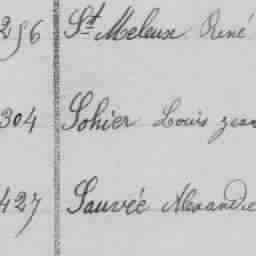 256 St Meleux René
304 Sohier Louis Jean
427 Sauvée Alexandre